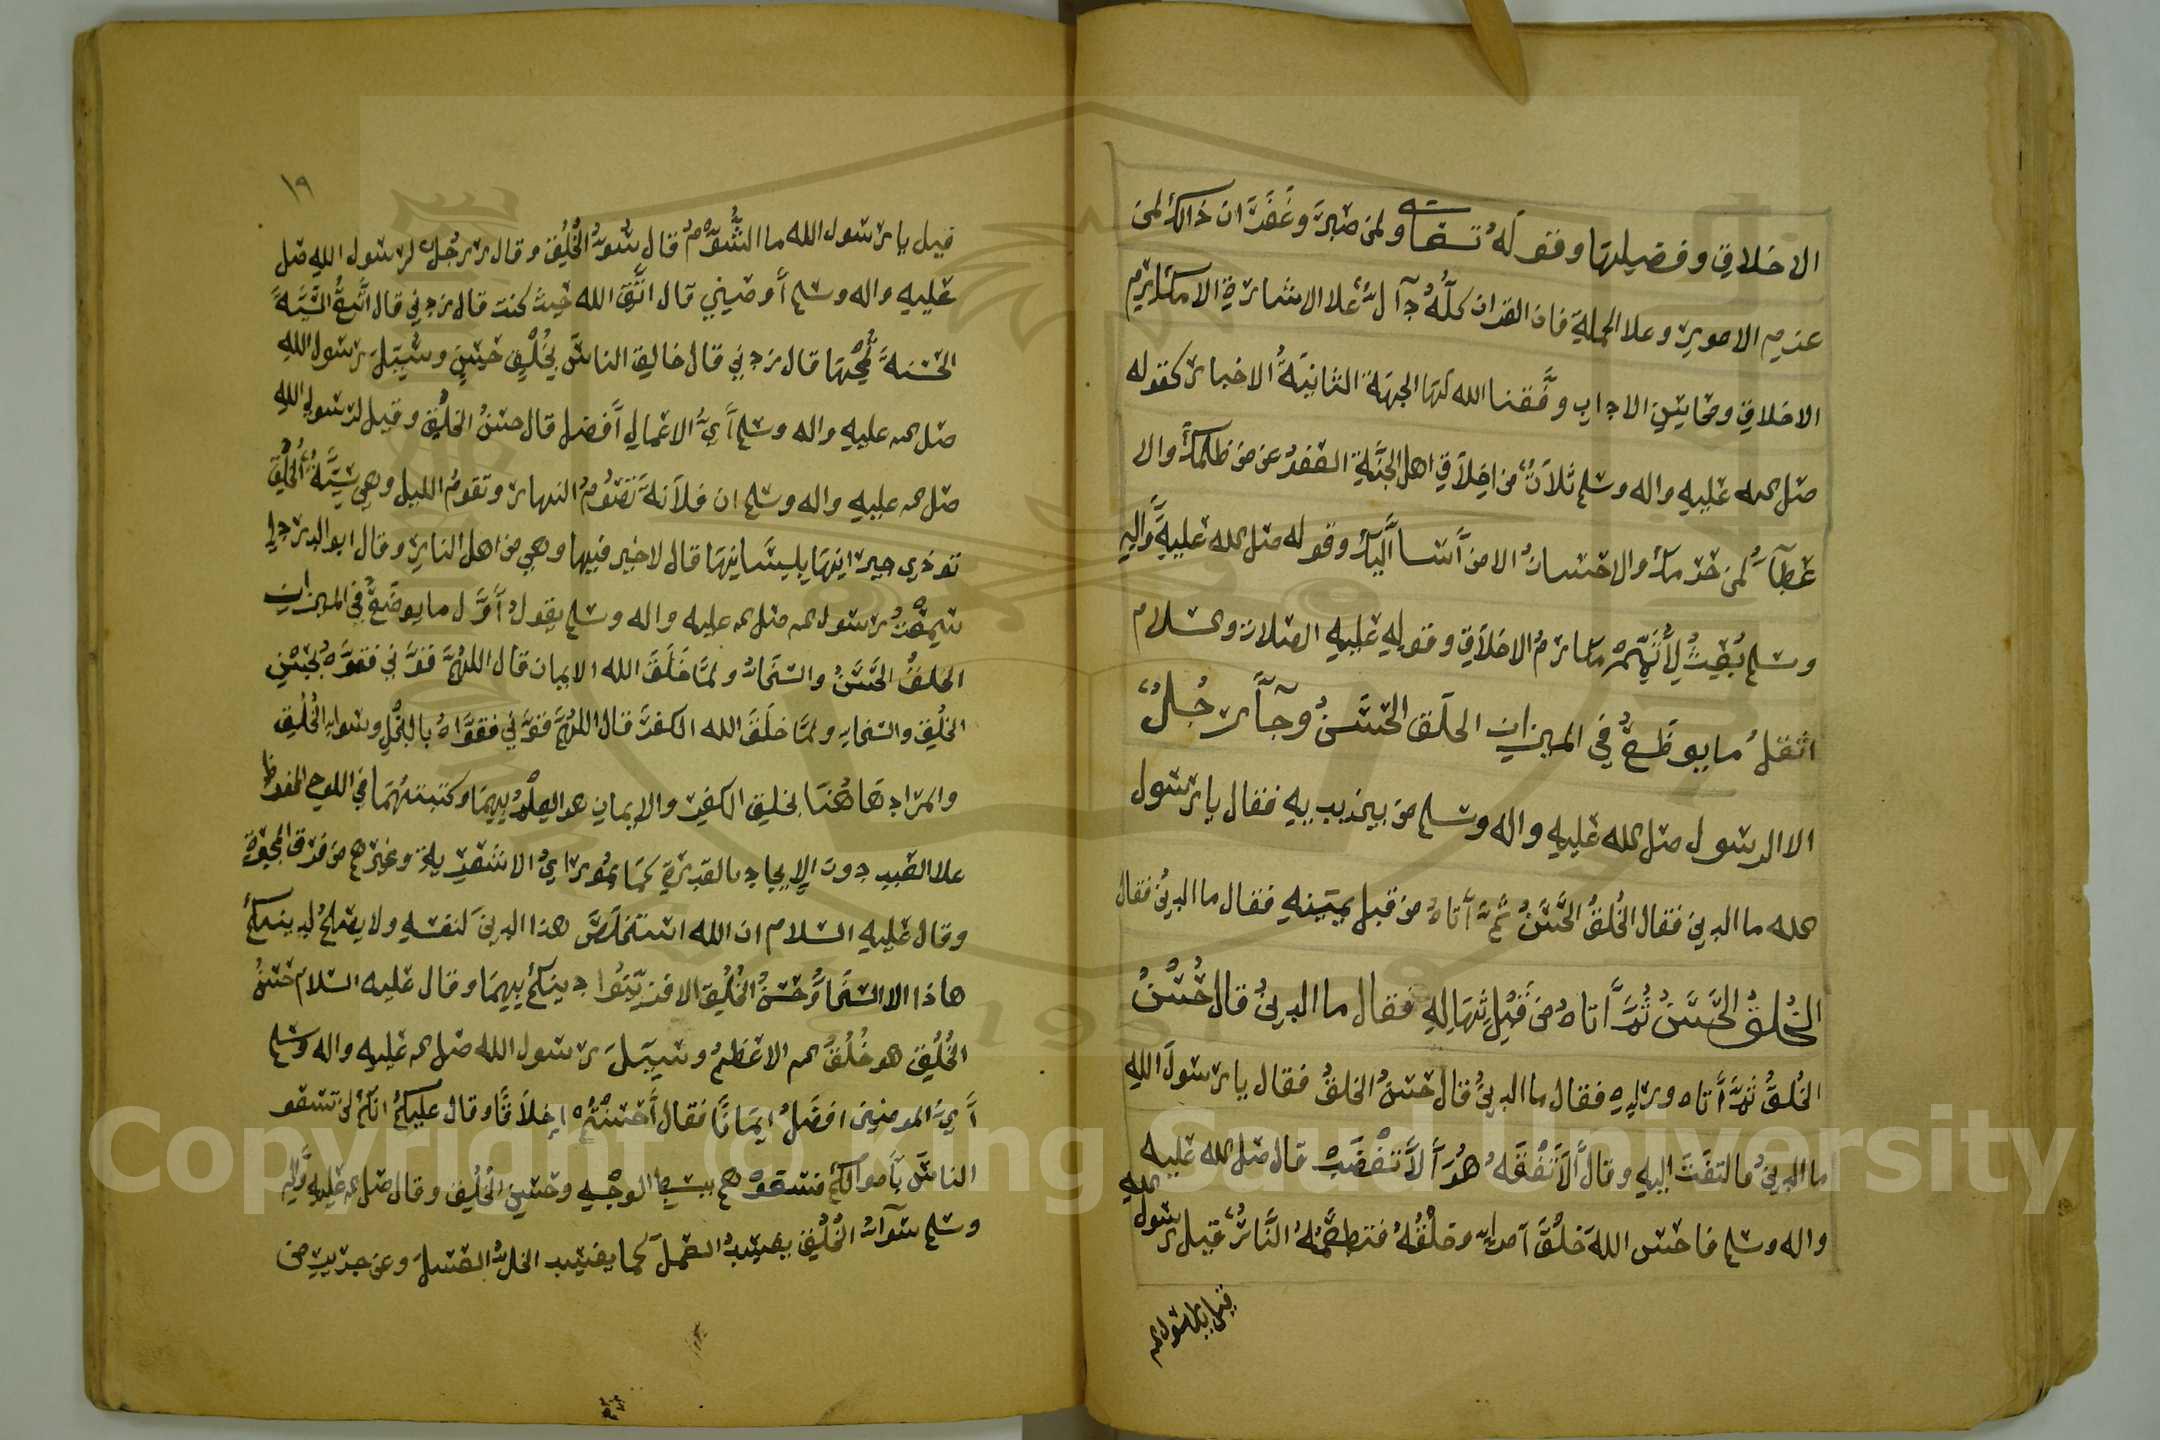 الاخلاق وفضيلتها وقوله تعالى ولمن صبر وغفر ان ذالك لمن
عزم الامور وعلا الجملة فان القران كله دآل علا الاشارة الامكارم
الاخلاق ومحاسن الاداب وفقنا الله لها الجهة الثانية الاخبار كقوله
صلى الله عليه واله وسلم ثلاث من اخلاق اهل الجنة العفو عن من ظلمك والا
عطآء لمن حرمك والاحسان الا من آسا اليك وقوله صلى الله عليه واله
وسلم بعثت لأتمم مكارم الاخلاق وقوله عليه الصلات والسلام
اثقل ما يوظع في الميزان الخلق الحسن وجآ رجل
الا الرسول صلى الله عليه واله وسلم من بين يديه فقال يا رسول
الله ما الدين فقال الخلق الحسن ثم آتاه من قبل يمينه فقال ما الدين فقال
الخلق الحسن ثم آتاه من قبل شماله فقال ما الدين قال حسن
الخلق ثم آتاه ورايه فقال ما الدين قال حسن الخلق فقال يا رسول الله
ما الدين فالتفت اليه وقال ألا تفقه هو ألا تغضب قال صلى الله عليه
واله وسلم ما حسن الله خلق آمراء وخلقه فتطعمه النار قيل رسول الله
قيل يا رسول الله
١٩
قيل يا رسول الله ما الشوم قال سوء الخلق وقال رجل لرسول الله صلى
عليه واله وسلم أوصيني قال اتق الله حيث كنت قال زدني قال اتبع السيئة
الحسنة تمحها قال زدني قال خالق الناس بخلق حسن وسيل رسول الله
صلى الله عليه واله وسلم أي الاعمال أفضل قال حسن الخلق وقيل لرسول الله
صلى الله عليه واله وسلم ان فلانة تصوم النهار وتقوم الليل وهي سيئة الخلق
توذي جيرانها بلسانها قال لا خير فيها وهي من اهل النار وقال ابو الدردا
سمعت رسول الله صلى الله عليه واله وسلم يقول أول ما يوضع في الميزان
الخلق الحسن والسخا ولما خلق الله الايمان قال اللهم قوني فقواه بحسن
الخلق والسخا ولما خلق الله الكفر قال اللهم قوني فقواه بالبخل وسوا الخلق
والمراد هاهنا بخلق الكفر والايمان هو العلم بهما وكتبتهما في اللوح المحفوظ
علا العبد دون الايجاد بالقدرة كما هو راي الاشعرية وغيرهم من فرق المجبرة
وقال عليه السلام ان الله استخلص هذا الدين لنفسه ولا يصلح لدينكم
هاذا الا السخا وحسن الخلق الا فزينوا دينكم بهما وقال عليه السلام حسن
الخلق هو خلق الله الاعظم وسيل رسول الله صلى الله عليه واله وسلم
أي المومنين افضل ايمانا فقال أحسنهم اخلاقا وقال عليكم انكم لن تسعو
الناس بآموالكم فسعوهم ببسط الوجه وحسن الخلق وقال صلى الله عليه واله
وسلم سوآء الخلق يفسد العمل كما يفسد الخل العسل وعن جرير بن